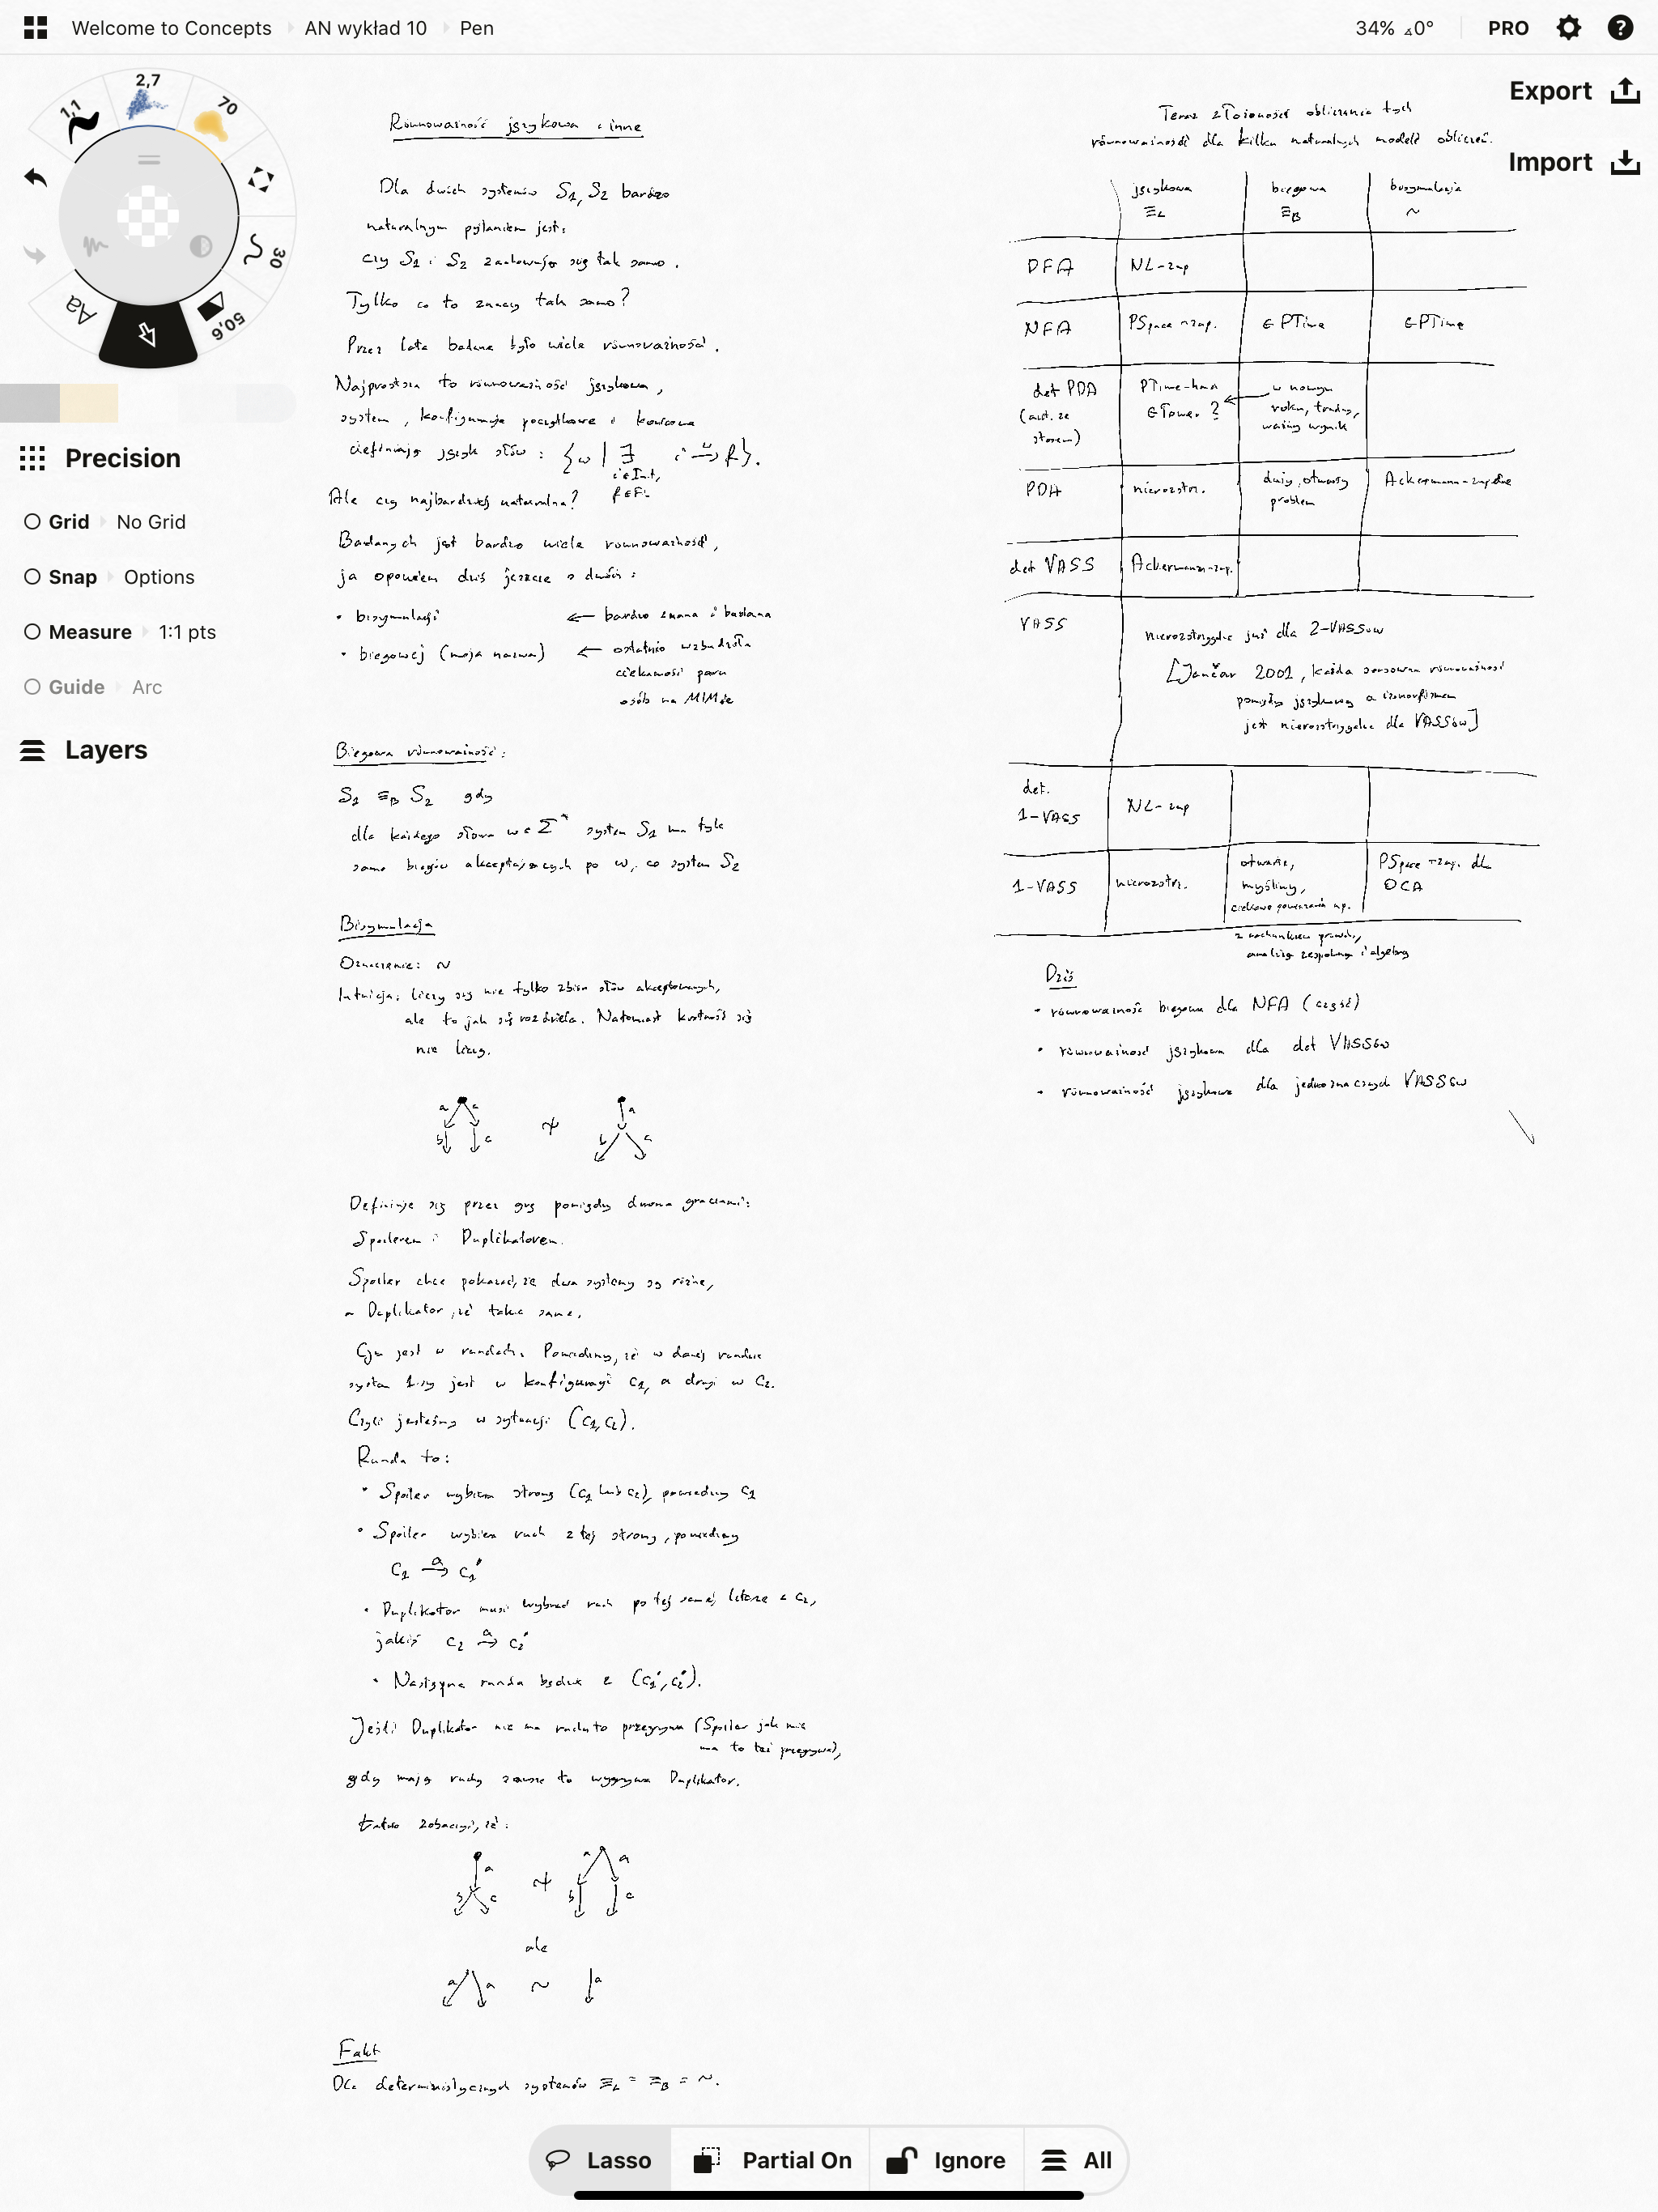 Welcome to Concepts
AN wykład 10
Pen
34% ⊿0°
PRO
Export
Import
2,7
1,1
70
30
50,6
Aa
Precision
Grid No Grid
Snap Options
Measure 1:1 pts
Guide Arc
Layers
Równoważność językowa i inne
Dla dwóch systemów S₁, S₂ bardzo
naturalnym pytaniem jest:
czy S₁ i S₂ zachowują się tak samo.
Tylko co to znaczy tak samo?
Przez lata badane było wiele równoważności.
Najprostsza to równoważność językowa,
system, konfiguracje początkowe i końcowe
definiują język słów: {w | ∃ i →ʷ f}.
i ∈ Init,
f ∈ Fin
Ale czy najbardziej naturalna?
Badanych jest bardzo wiele równoważności,
ja opowiem dziś jeszcze o dwóch:
• bisymulacji ← bardzo znana i badana
• biegowej (moja nazwa) ← ostatnio wzbudziła
ciekawość paru
osób na MIMie
Biegowa równoważność:
S₁ ≡B S₂ gdy
dla każdego słowa w ∈ Σ* system S₁ ma tyle
samo biegów akceptujących po w, co system S₂
Bisymulacja
Oznaczenie: ~
Intuicja: liczy się nie tylko zbiór słów akceptowanych,
ale to jak się rozdziela. Natomiast krotność się
nie liczy.
a a b c ≁ a b c
Definiuje się przez grę pomiędzy dwoma graczami:
Spoilerem i Duplikatorem.
Spoiler chce pokazać, że dwa systemy są różne,
a Duplikator, że takie same.
Gra jest w rundach. Powiedzmy, że w danej rundzie
system 1szy jest w konfiguracji c₁, a drugi w c₂.
Czyli jesteśmy w sytuacji (c₁, c₂).
Runda to:
• Spoiler wybiera stronę (c₁ lub c₂), powiedzmy c₁
• Spoiler wybiera ruch z tej strony, powiedzmy
c₁ →ᵃ c₁'
• Duplikator musi wybrać ruch po tej samej literze z c₂,
jakiś c₂ →ᵃ c₂'
• Następna runda będzie z (c₁', c₂').
Jeśli Duplikator nie ma ruchu to przegrywa (Spoiler jak nie
ma to też przegrywa),
gdy mają ruchy zawsze to wygrywa Duplikator.
Łatwo zobaczyć, że:
a b c ≁ a a b c
ale
a a ~ a
Fakt
Dla deterministycznych systemów ≡L = ≡B = ~.
Teraz złożoność obliczania tych
równoważność dla kilku naturalnych modeli obliczeń.
językowa biegowa bisymulacja
≡L ≡B ~
DFA NL-zup
NFA PSpace-zup. ∈ PTime ∈ PTime
det PDA PTime-hard ← w nowym
(aut. ze ∈ Tower ? roku, trudny,
stosem) ważny wynik
PDA nierozstr. duży, otwarty Ackermann-zupełne
problem
det VASS Ackermann-zup.
VASS nierozstrzygalne już dla 2-VASSów
[Jančar 2001, każda sensowna równoważność
pomiędzy językową a izomorfizmem
jest nierozstrzygalna dla VASSów]
det.
1-VASS NL-zup
1-VASS nierozstr. otwarte, PSpace-zup. dla
myślimy, OCA
ciekawe powiązania np.
z rachunkiem prawdo,
analizą zespoloną i algebrą
Dziś
• równoważność biegowa dla NFA (część)
• równoważność językowa dla det VASSów
• równoważność językowa dla jednoznacznych VASSów
Lasso
Partial On
Ignore
All